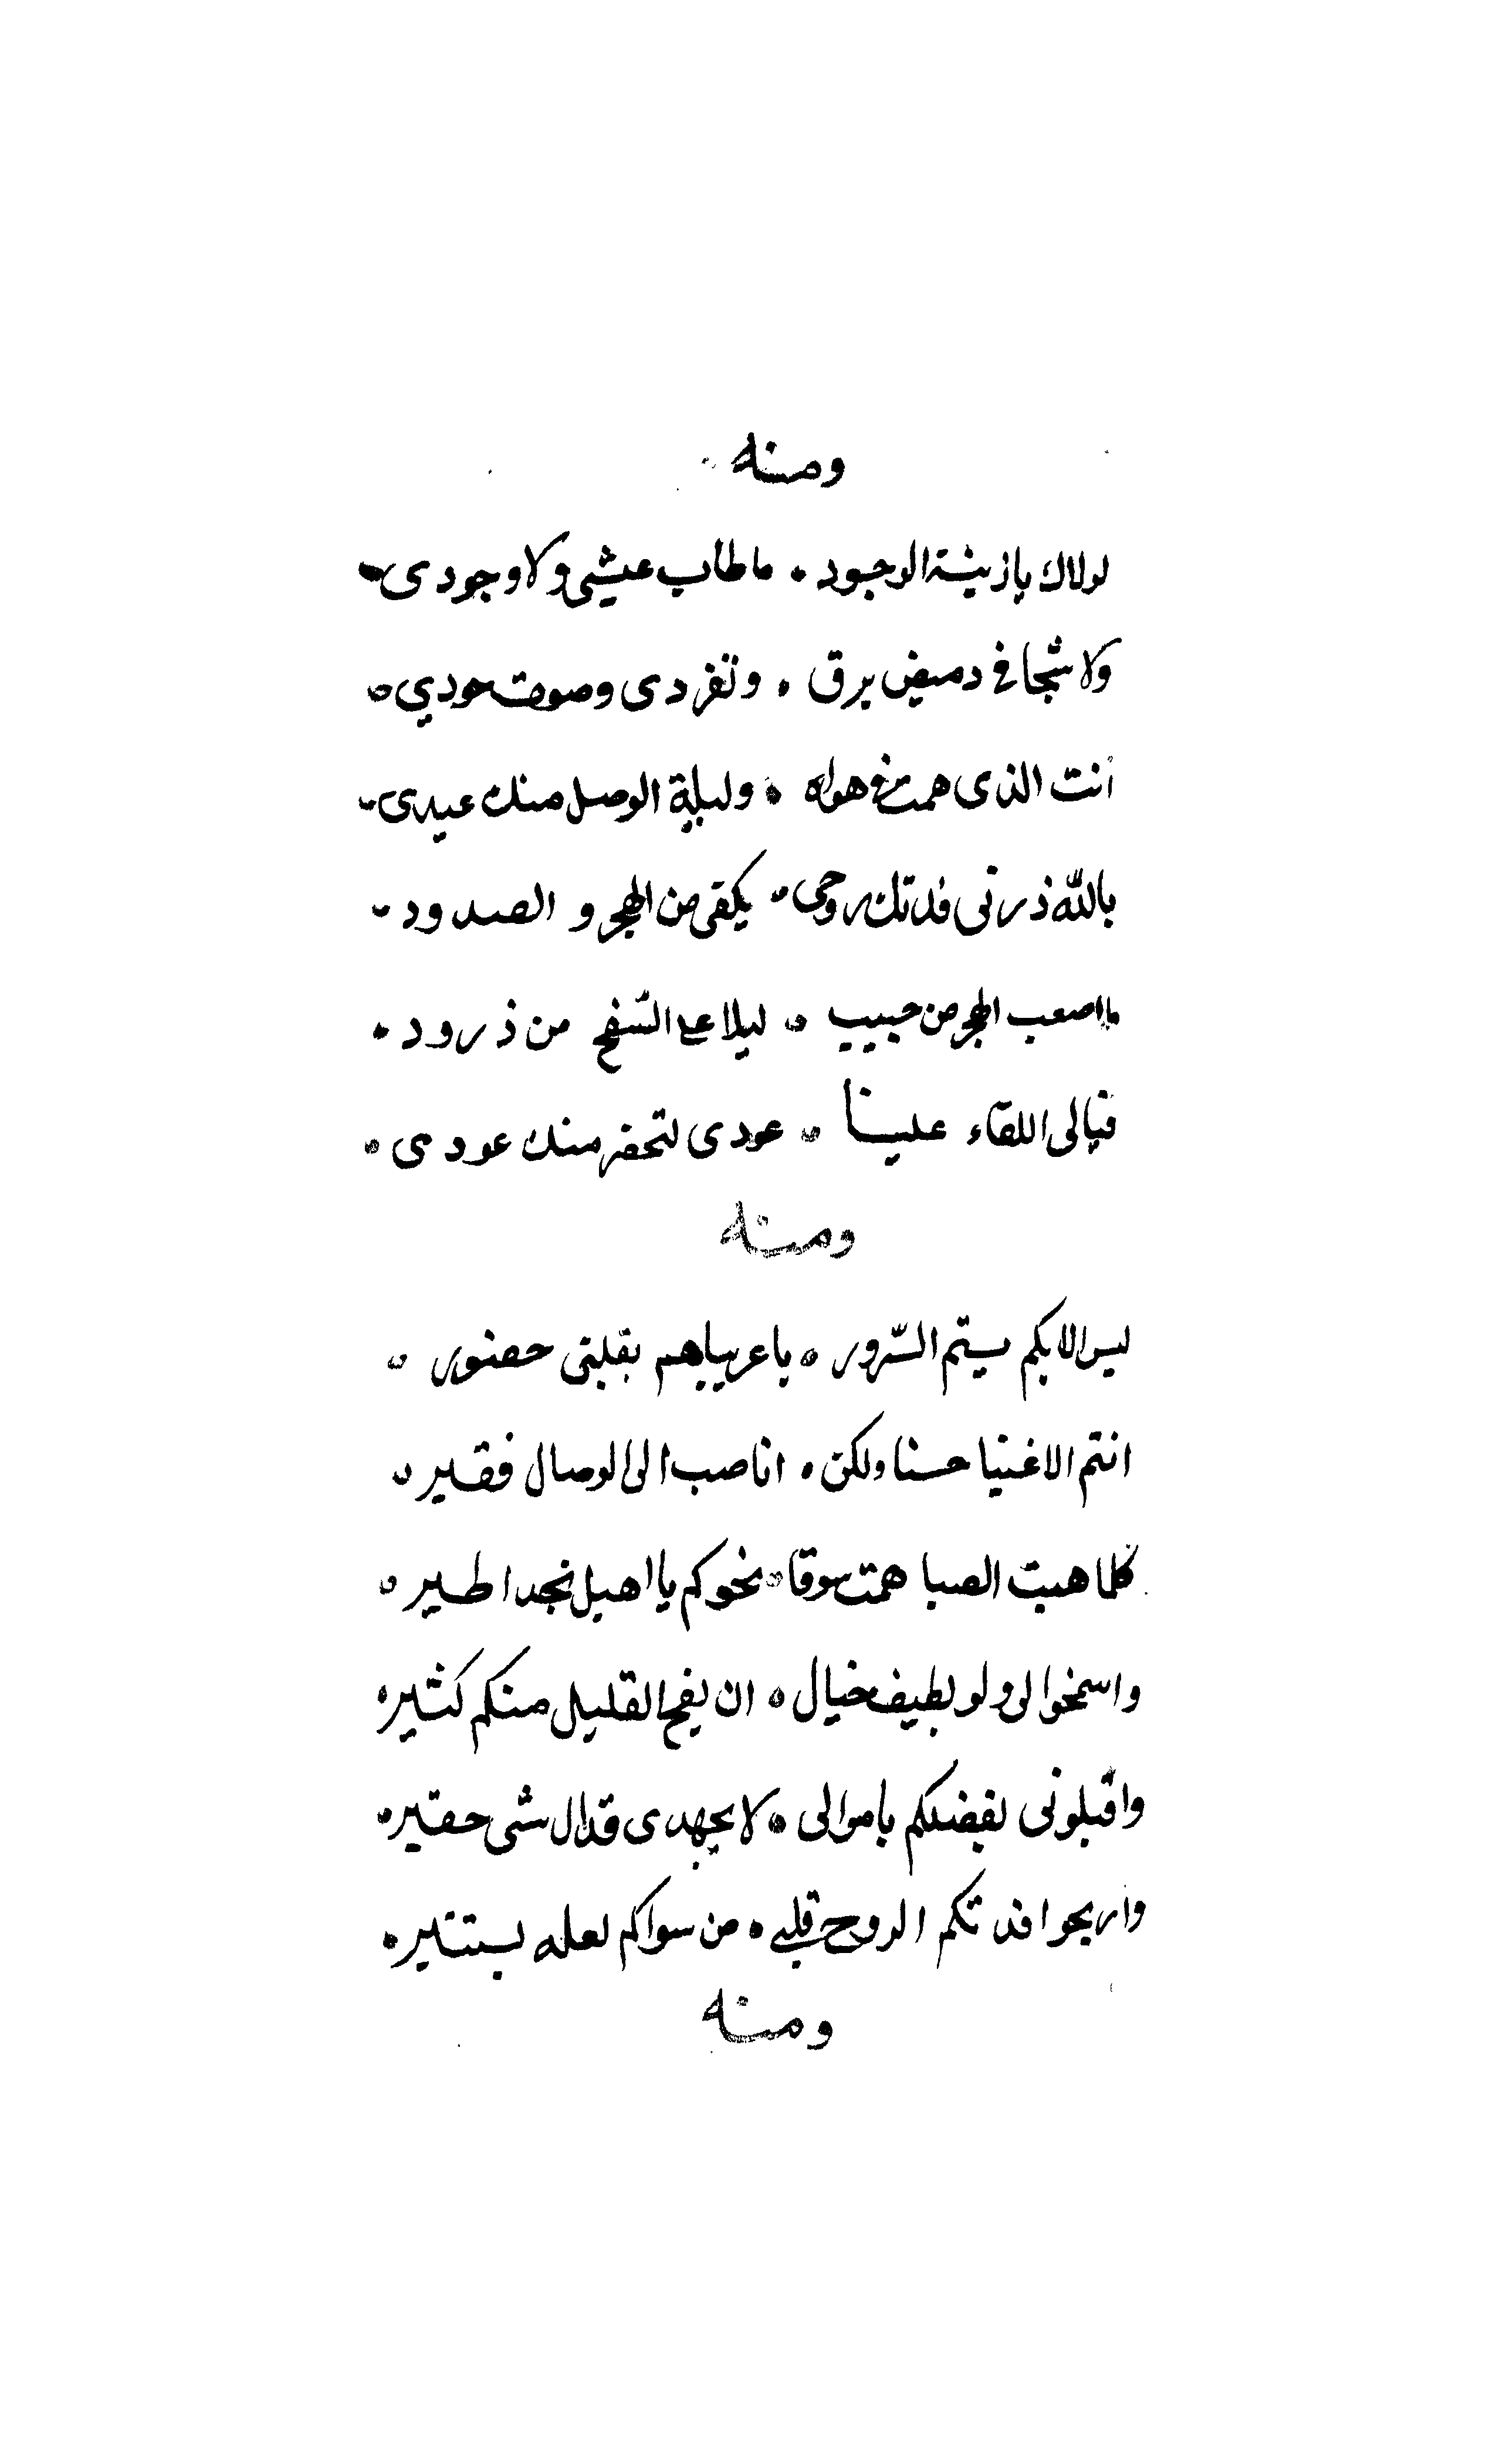 ومنه
لولاك يازينة الوجود ٠ ماطاب عيشي ولا وجودى
ولا شجانى دميض برق ٠ وتغردى وصوت عودي
انت الذى همت فى هواه ٠ وليلة الوصل منك عيدى
بالله ذرنى فدتك روحى ٠ يكفى من الهجر و الصدود
ما اصعب الهجر من حبيب ٠ ليلا على السّفح من ذرود ٠
فيالى اللقاء علينا ٠ عودى منك عودى ٠
ومنه
ليس الا بكم يتم السّرور ٠ ياعريباهم بقلبى حضور ٠
انتم الاغنيا حسنا ولكن ٠ انا صب الى الوصال فقير ٠
كلما هبت الصبا همت سوقا ٠ نحوكم يا اهيل نجد اطير ٠
واسمحوا لى ولو بطيف خيال ٠ ان القليل منكم كثير ٠
واقبلونى بفضلكم ياموالى ٠ لا بجهدى شى حقير ٠
واريحوا فدتكم الروح قلبى ٠ من سواكم لعله يستنير ٠
ومنه